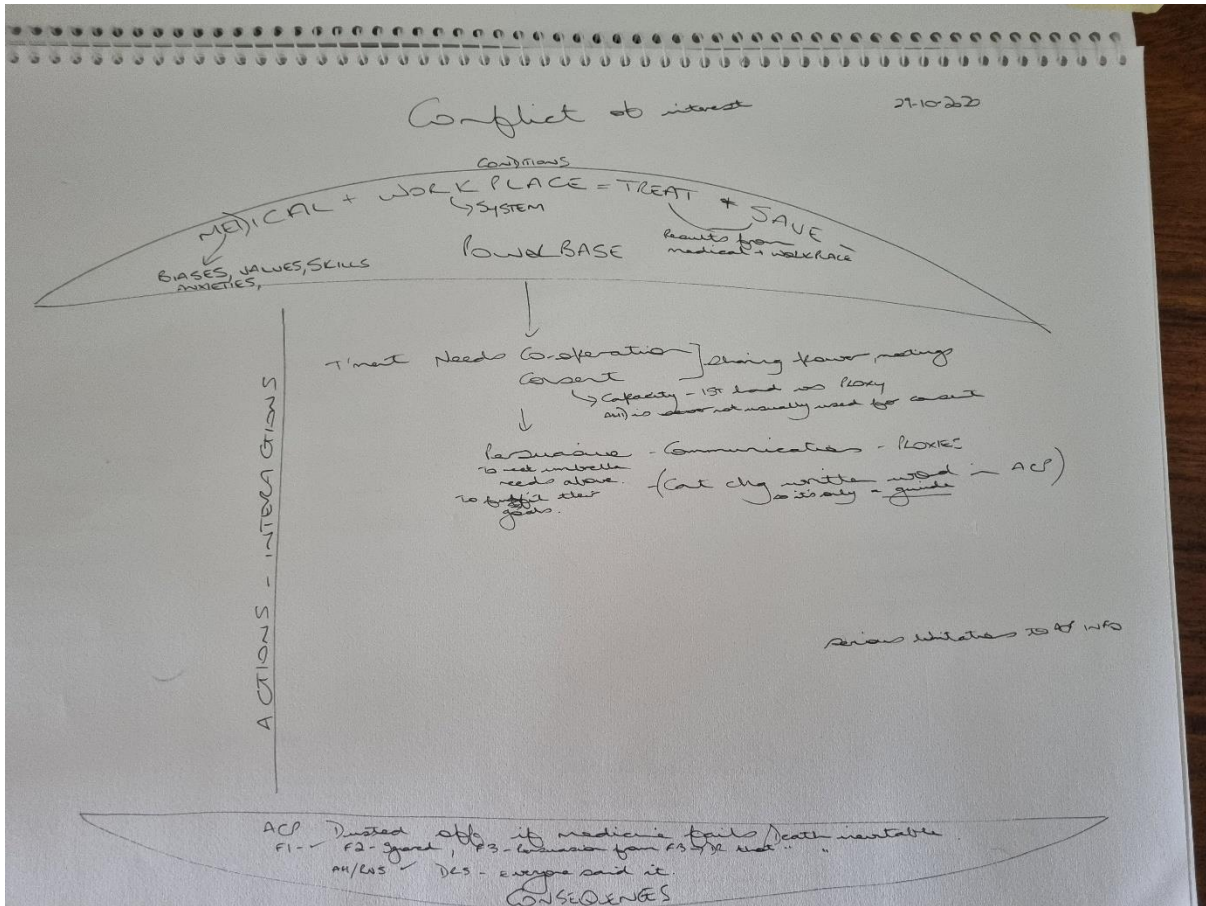 Conflict of interest
29-10-2020
CONDITIONS
MEDICAL + WORKPLACE = TREAT + SAVE
↳ SYSTEM
Results from
medical + WORKPLACE
BIASES, VALUES, SKILLS
ANXIETIES,
POWER BASE
T'ment Needs Co-operation ] sharing power, meetings
Consent
↳ Capacity - 1ST hand vs PROXY
AHD is not usually used for consent
Persuasive - Communication - PROXIES
To meet umbrella
needs above.
To fulfil their
goals.
- (Can't chg written word in ACP)
so it's only a guide
ACTIONS - INTERACTIONS
serious limitations to ACP INFO
ACP Dusted off if medicine fails / Death inevitable
F1 - ✓ F2 - , F3 - from F3 → DR that " "
AH/RNS ✓ DRS - everyone said it.
CONSEQUENCES